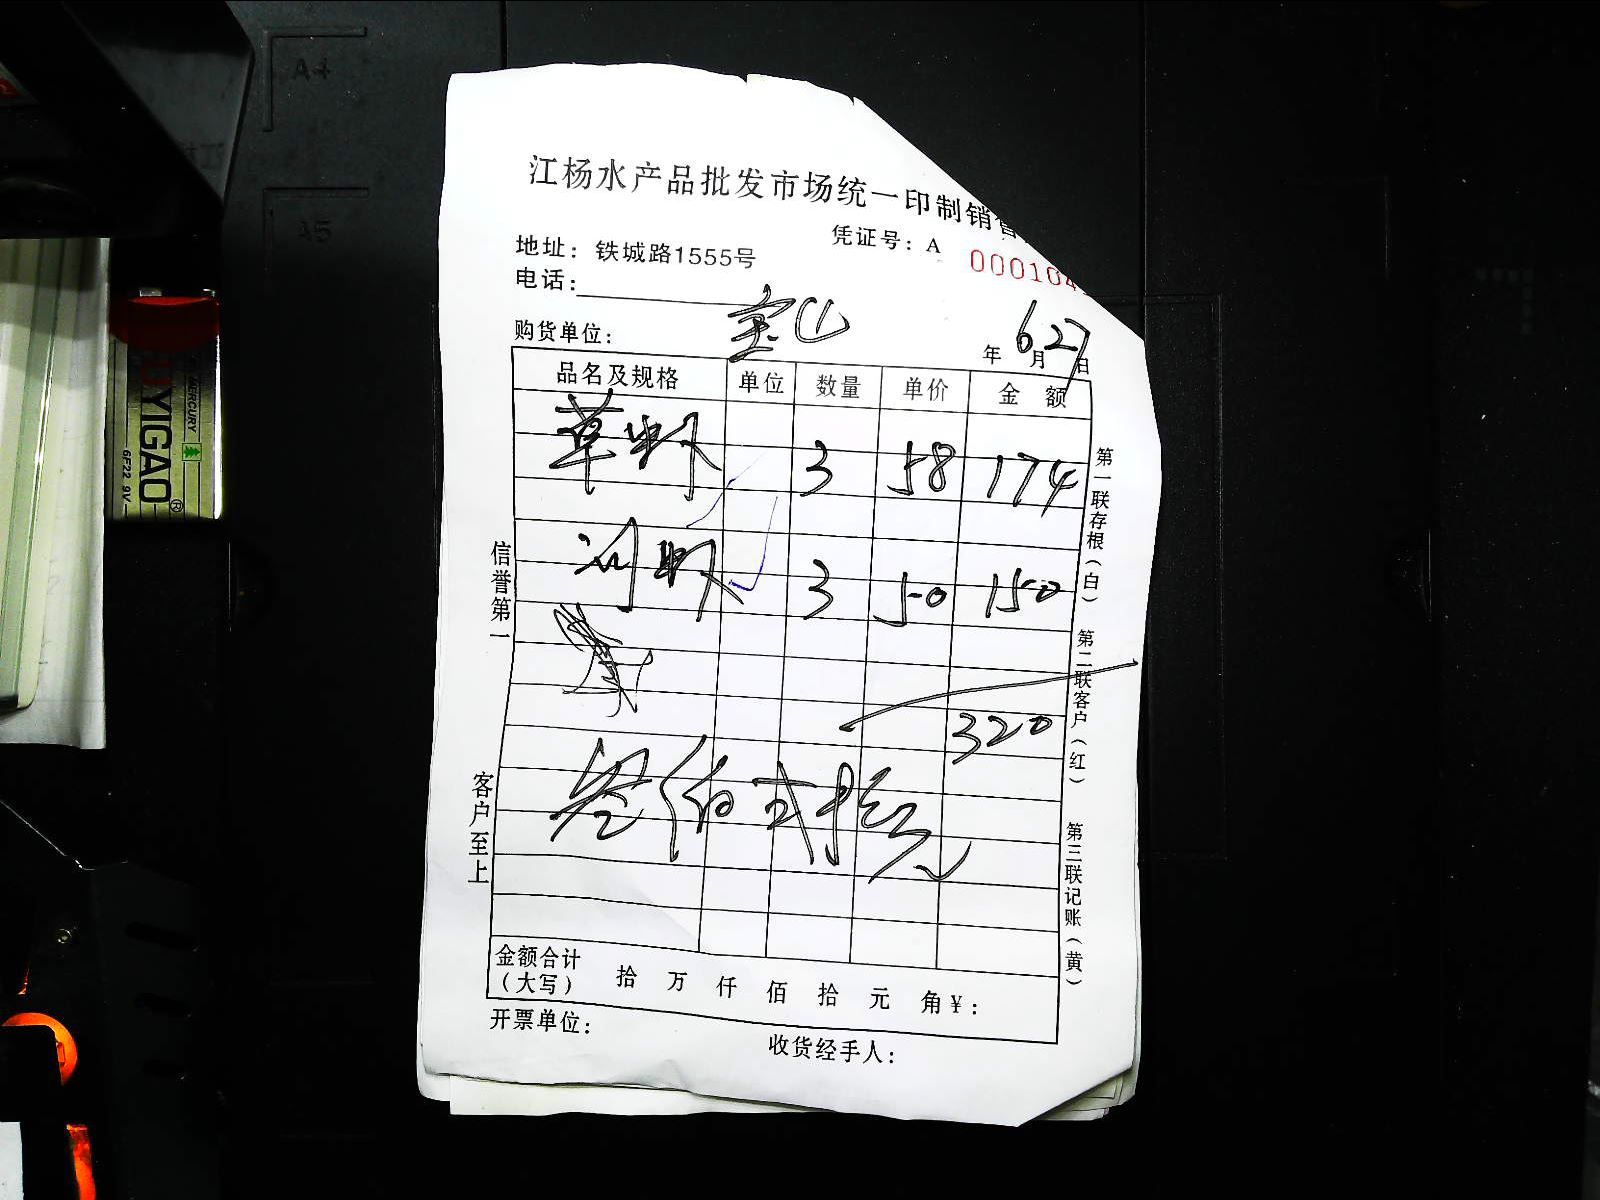 江杨水产品批发市场统一印制销售
凭证号：A 000104
地址：铁城路1555号
电话：
购货单位：宝山
年 6月27日
品名及规格 单位 数量 单价 金额
草虾 3 58 174
河虾 3 50 150
320
叁佰贰拾元
金额合计（大写） 拾 万 仟 佰 拾 元 角 ¥：
开票单位：
收货经手人：
信誉第一
客户至上
第一联存根（白）
第二联客户（红）
第三联记账（黄）
A4
A5
MERCURY
YIGAO®
6F22 9V